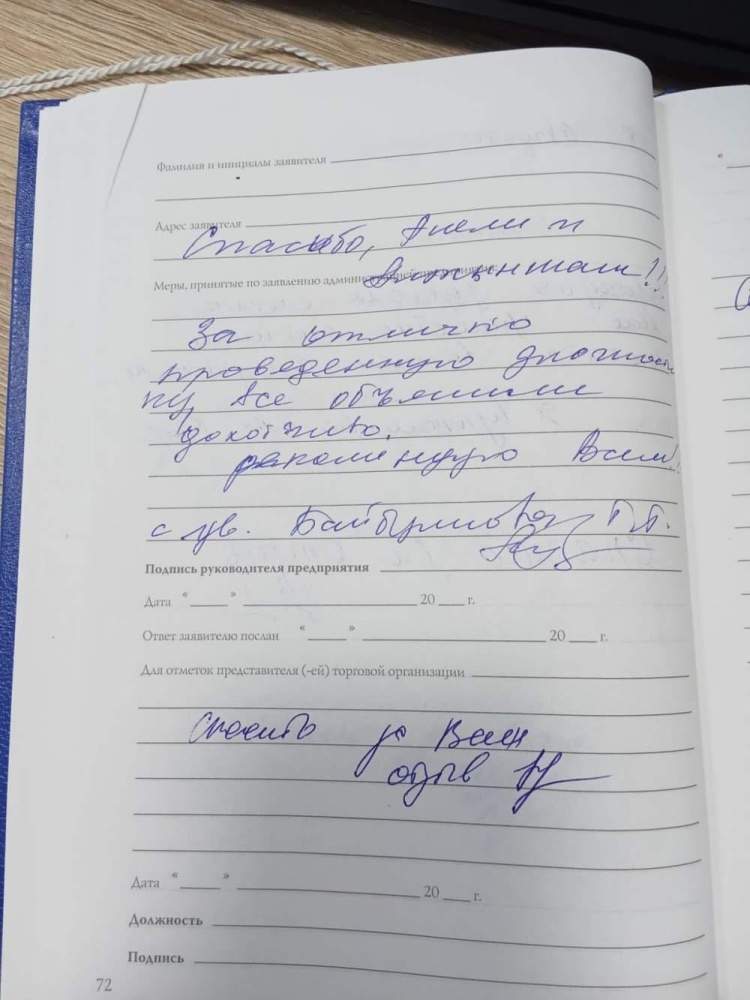 Фамилия и инициалы заявителя
Адрес заявителя
Спасибо, Анели и
Меры, принятые по заявлению
!!!
За отлично
проведенную диагности
ку, все объяснили
доходчиво.
рекомендую Всем!!
с ув. Г.П.
Подпись руководителя предприятия
Дата "___" 20 ___ г.
Ответ заявителю послан "___" 20 ___ г.
Для отметок представителя (-ей) торговой организации
Спасибо за Ваш
отзыв
Дата "___" 20 ___ г.
Должность
Подпись
72